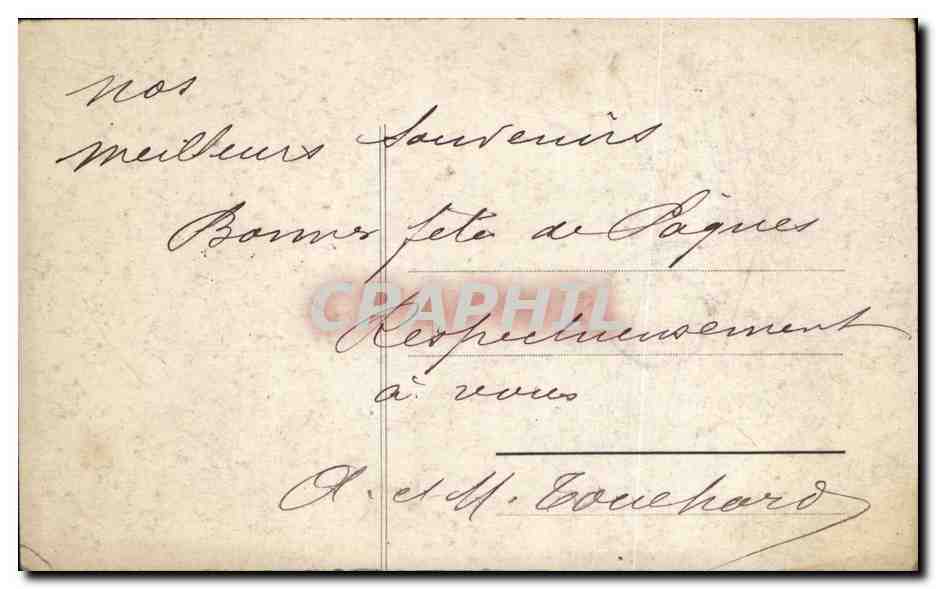 nos
meilleurs souvenirs
Bonnes fete de Pâques
CPAPHIL
Respectueusement
à vous
A. et M. Touchard